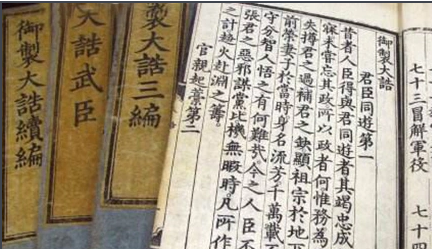 七十三冒解軍役 七十四
御製大誥
君臣同遊第一
昔者人臣得與君同遊者其竭忠成
寐未嘗忘其政所以政者何惟務為
失撙君之過補君之缺顯祖宗於地
前榮妻子於當時身名流芳千萬載不
守分智人悟之有何難哉今之人臣不
張君之惡邪謀黨比機無暇時凡所作
之計趨火赴淵之籌
官親起藁第二
製大誥三編
大誥武臣
御製大誥續編